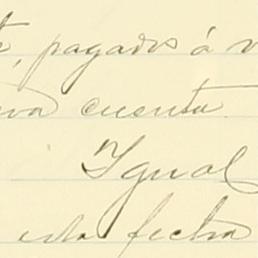 pagados á
cuenta
Igual
esta fecha